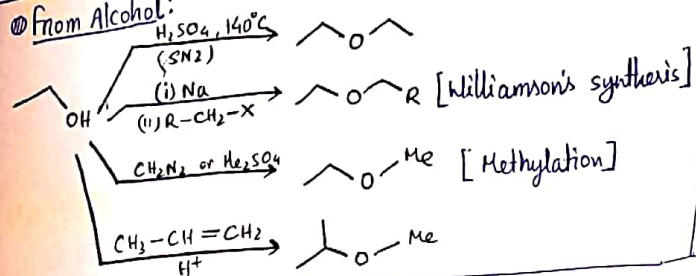 From Alcohol:
H₂SO₄, 140°C
(SN2)
(i) Na
(ii) R-CH₂-X
OH
O
O R [Williamson's synthesis]
CH₂N₂ or Me₂SO₄
O Me [Methylation]
CH₃-CH=CH₂
H⁺
O Me